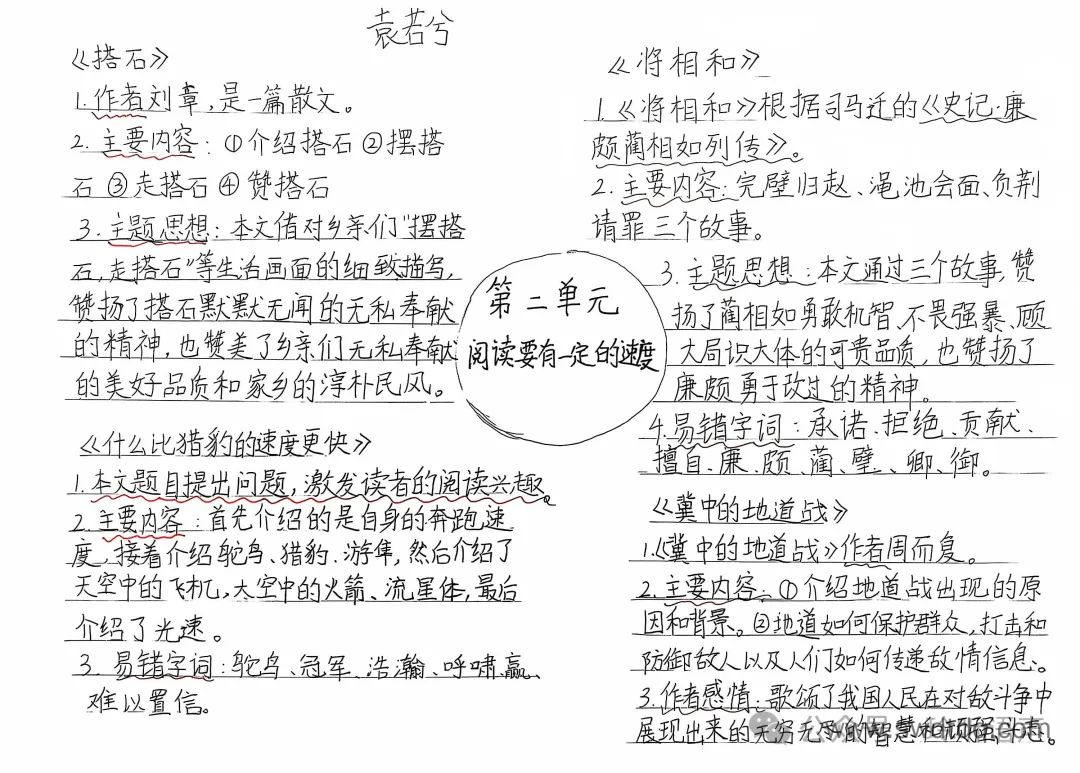 袁若兮
《搭石》
1.作者刘章,是一篇散文。
2.主要内容:①介绍搭石②摆搭
石③走搭石④赞搭石
3.主题思想:本文借对乡亲们“摆搭
石,走搭石”等生活画面的细致描写,
赞扬了搭石默默无闻的无私奉献
的精神,也赞美了乡亲们无私奉献
的美好品质和家乡的淳朴民风。
《什么比猎豹的速度更快》
1.本文题目提出问题,激发读者的阅读兴趣。
2.主要内容:首先介绍的是自身的奔跑速
度,接着介绍鸵鸟、猎豹、游隼,然后介绍了
天空中的飞机,太空中的火箭、流星体,最后
介绍了光速。
3.易错字词:鸵鸟、冠军、浩瀚、呼啸、赢、
难以置信。
第二单元
阅读要有一定的速度
《将相和》
1.《将相和》根据司马迁的《史记·廉
颇蔺相如列传》。
2.主要内容:完璧归赵、渑池会面、负荆
请罪三个故事。
3.主题思想:本文通过三个故事,赞
扬了蔺相如勇敢机智、不畏强暴、顾
大局识大体的可贵品质,也赞扬了
廉颇勇于改过的精神。
4.易错字词:承诺、拒绝、贡献、
擅自、廉、颇、蔺、璧、卿、御。
《冀中的地道战》
1.《冀中的地道战》作者周而复。
2.主要内容:①介绍地道战出现的原
因和背景。②地道如何保护群众,打击和
防御敌人以及人们如何传递敌情信息。
3.作者感情:歌颂了我国人民在对敌斗争中
展现出来的无穷无尽的智慧和顽强斗志。
公众号